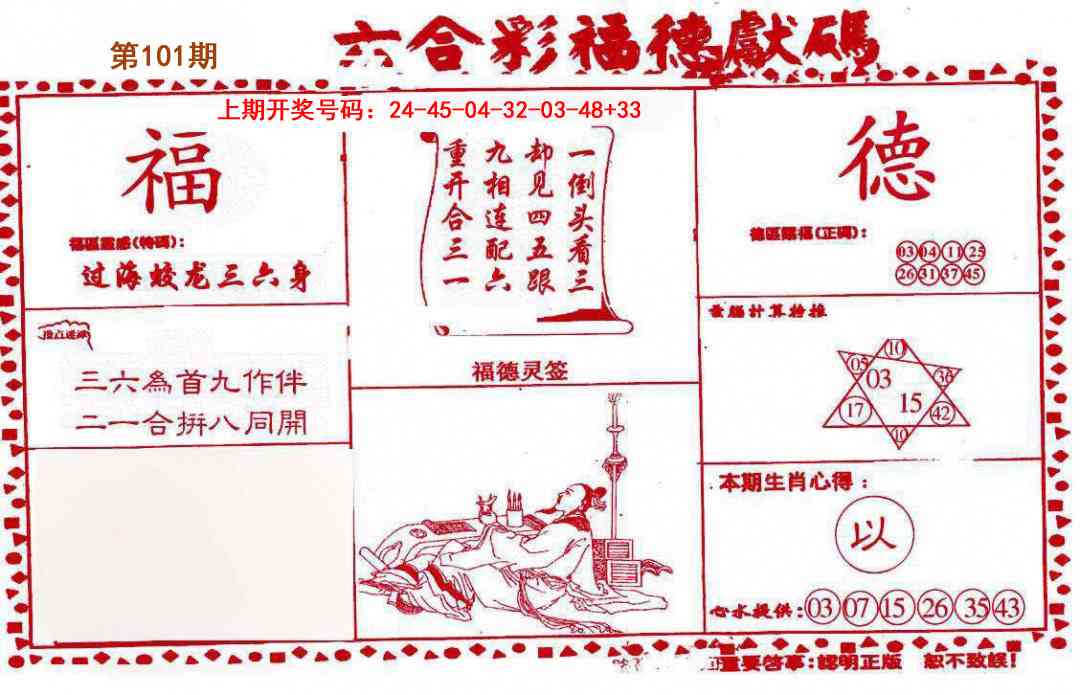 六合彩福德獻碼
第101期
上期开奖号码：24-45-04-32-03-48+33
福
福區靈感(特碼)：
过海蛟龙三六身
三六為首九作伴
二一合拼八同開
一倒头看三
却见四五跟
九相连配六
重开合三一
福德灵签
德
德區賜福(正碼)：
03 04 11 25
26 31 37 45
電腦計算特推
10
05 03 36
17 15 42
10
本期生肖心得：
以
心水提供：03 07 15 26 35 43
重要啓事：認明正版 恕不致誤！